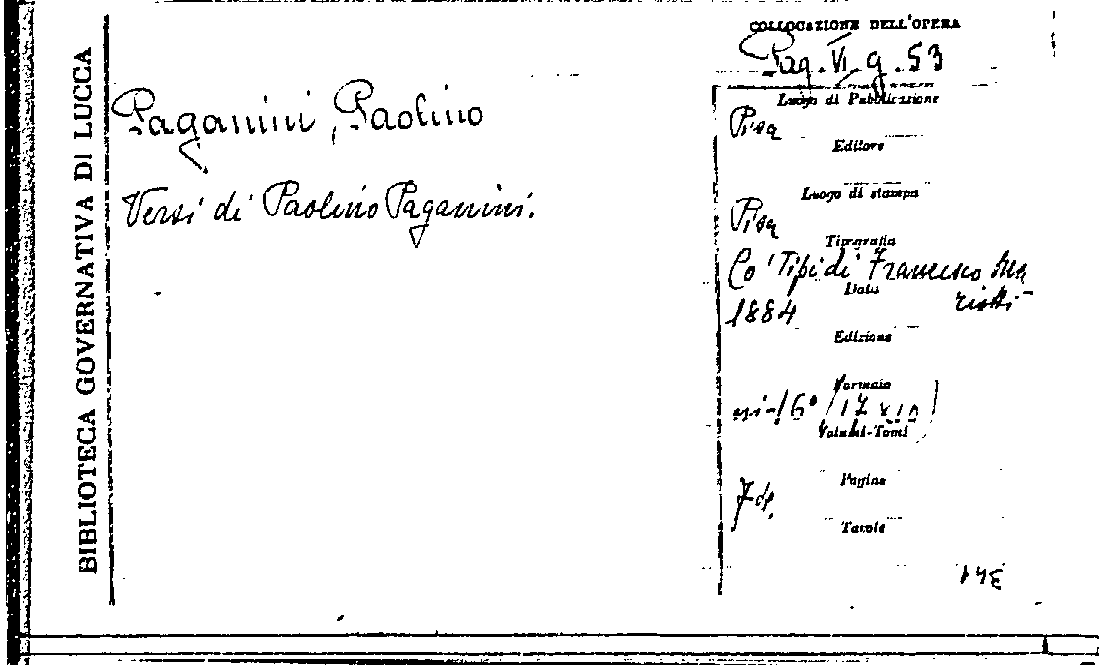 BIBLIOTECA GOVERNATIVA DI LUCCA
Paganini, Paolino
Versi di Paolino Paganini.
COLLOCAZIONE DELL'OPERA
Pag. VI. g. 53
Luogo di Pubblicazione
Pisa
Editore
Luogo di stampa
Pisa
Tipografia
Co' Tipi di Francesco Ma
riotti
Data
1884
Edizione
Formato
in-16° (17 x 10)
Volumi-Tomi
Pagine
Tavole